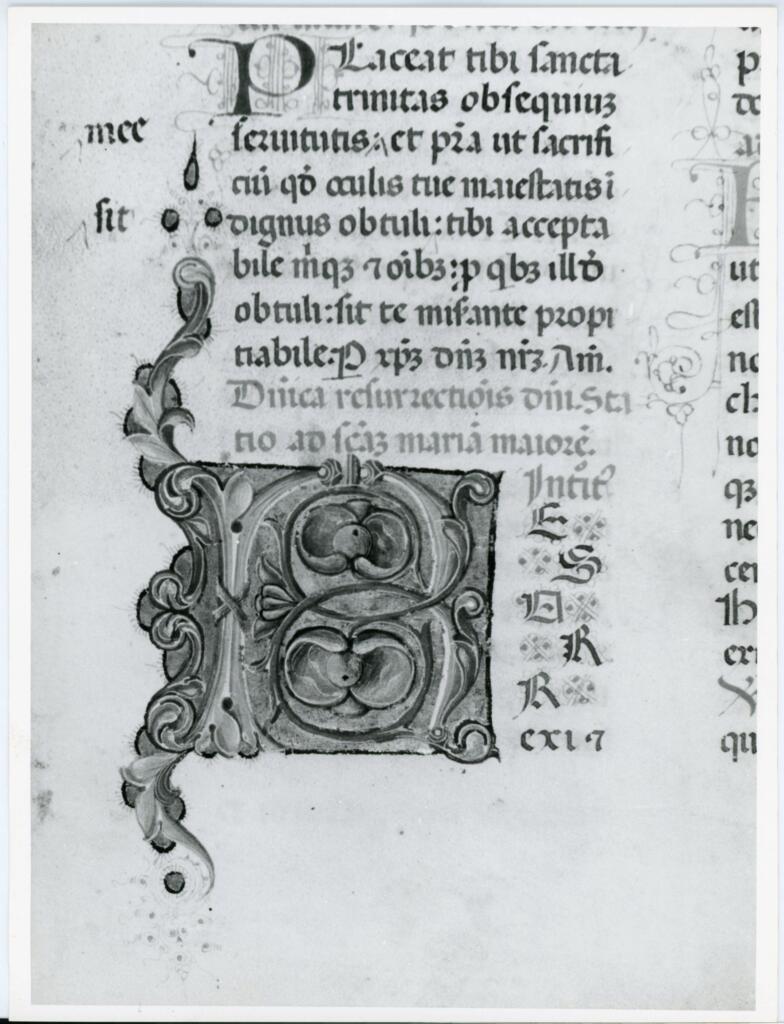 PLaceat tibi sancta
trinitas obsequiuʒ
mee
seruitutis: et pr̃a ut sacrifi
ciũ qđ oculis tue maiestatis ĩ
sit
dignus obtuli: tibi accepta
bile m̃qʒ ⁊ oĩbʒ: p qbʒ illđ
obtuli: sit te miſante propi
tiabile. P xp̃ʒ dñʒ nr̃ʒ. Am̃.
Dñica resurrectiõis dñi. Sta
tio ad scãʒ mariã maiorẽ.
Introit
E
S
U
R
R
exi ⁊
p
ut
est
no
ch
no
qʒ
ne
cer
qu